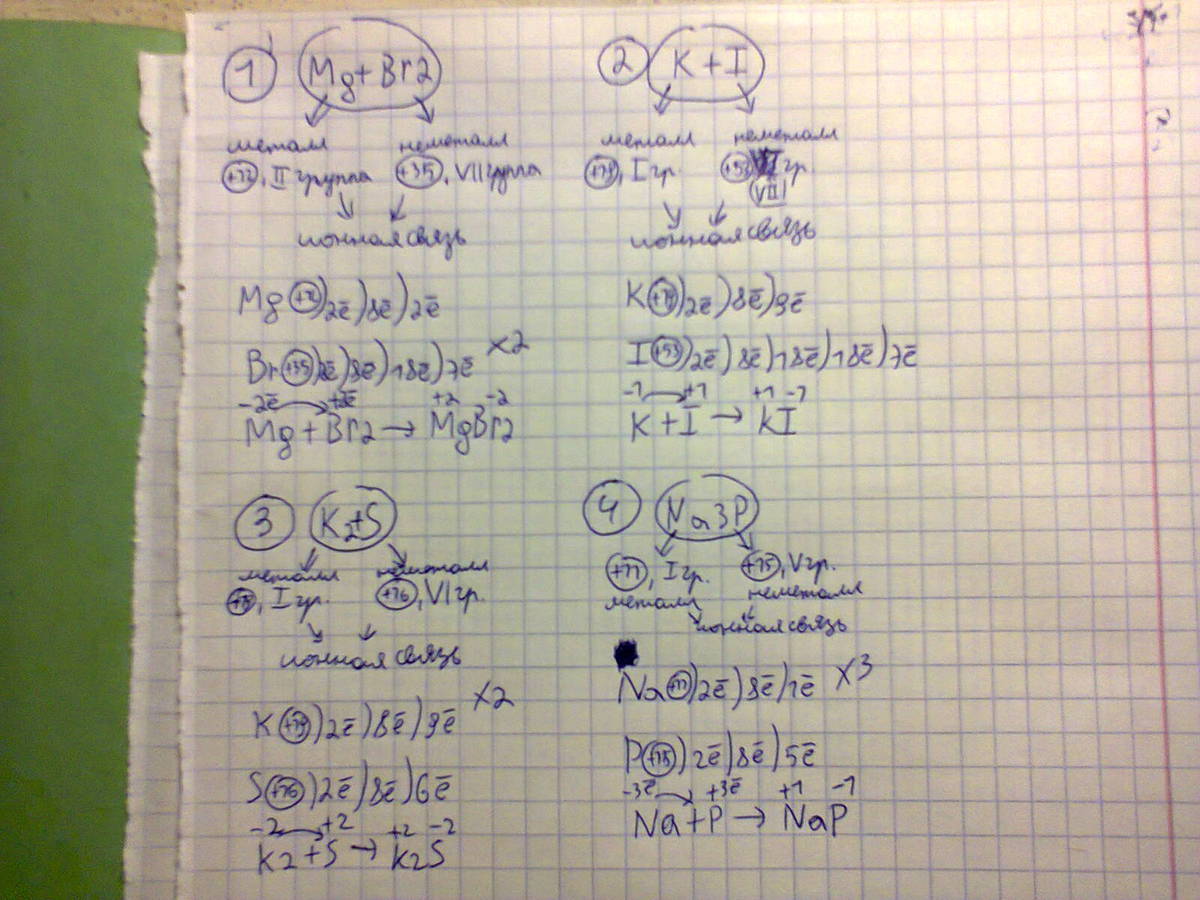 1 Mg + Br2
металл неметалл
+12, II группа +35, VII группа
ионная связь
Mg +12 )2ē )8ē )2ē
Br +35 )2ē )8ē )18ē )7ē ×2
-2ē +2ē +2 -2
Mg + Br2 → MgBr2
2 K + I
металл неметалл
+19, I гр. +53 гр.
(VII)
ионная связь
K +19 )2ē )8ē )9ē
I +53 )2ē )8ē )18ē )18ē )7ē
-1 +1 +1 -1
K + I → KI
3 K2+S
металл неметалл
+19, I гр. +16, VI гр.
ионная связь
K +19 )2ē )8ē )9ē ×2
S +16 )2ē )8ē )6ē
-2 +2 +2 -2
K2 + S → K2S
4 Na3P
+11, I гр. +15, V гр.
металл неметалл
ионная связь
Na +11 )2ē )8ē )1ē ×3
P +15 )2ē )8ē )5ē
-3ē +3ē +1 -1
Na + P → NaP